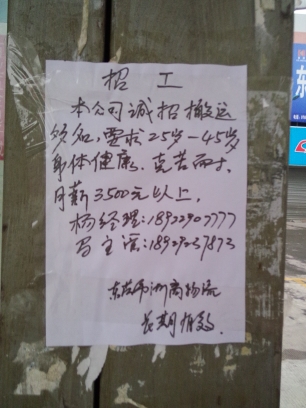 招 工
本公司诚招搬运
多名,要求25岁-45岁
身体健康、克苦而才,
月薪3500元以上,
杨经理:18922907777
主谣:18929237873
东莞市浙商物流
长期有效.
东